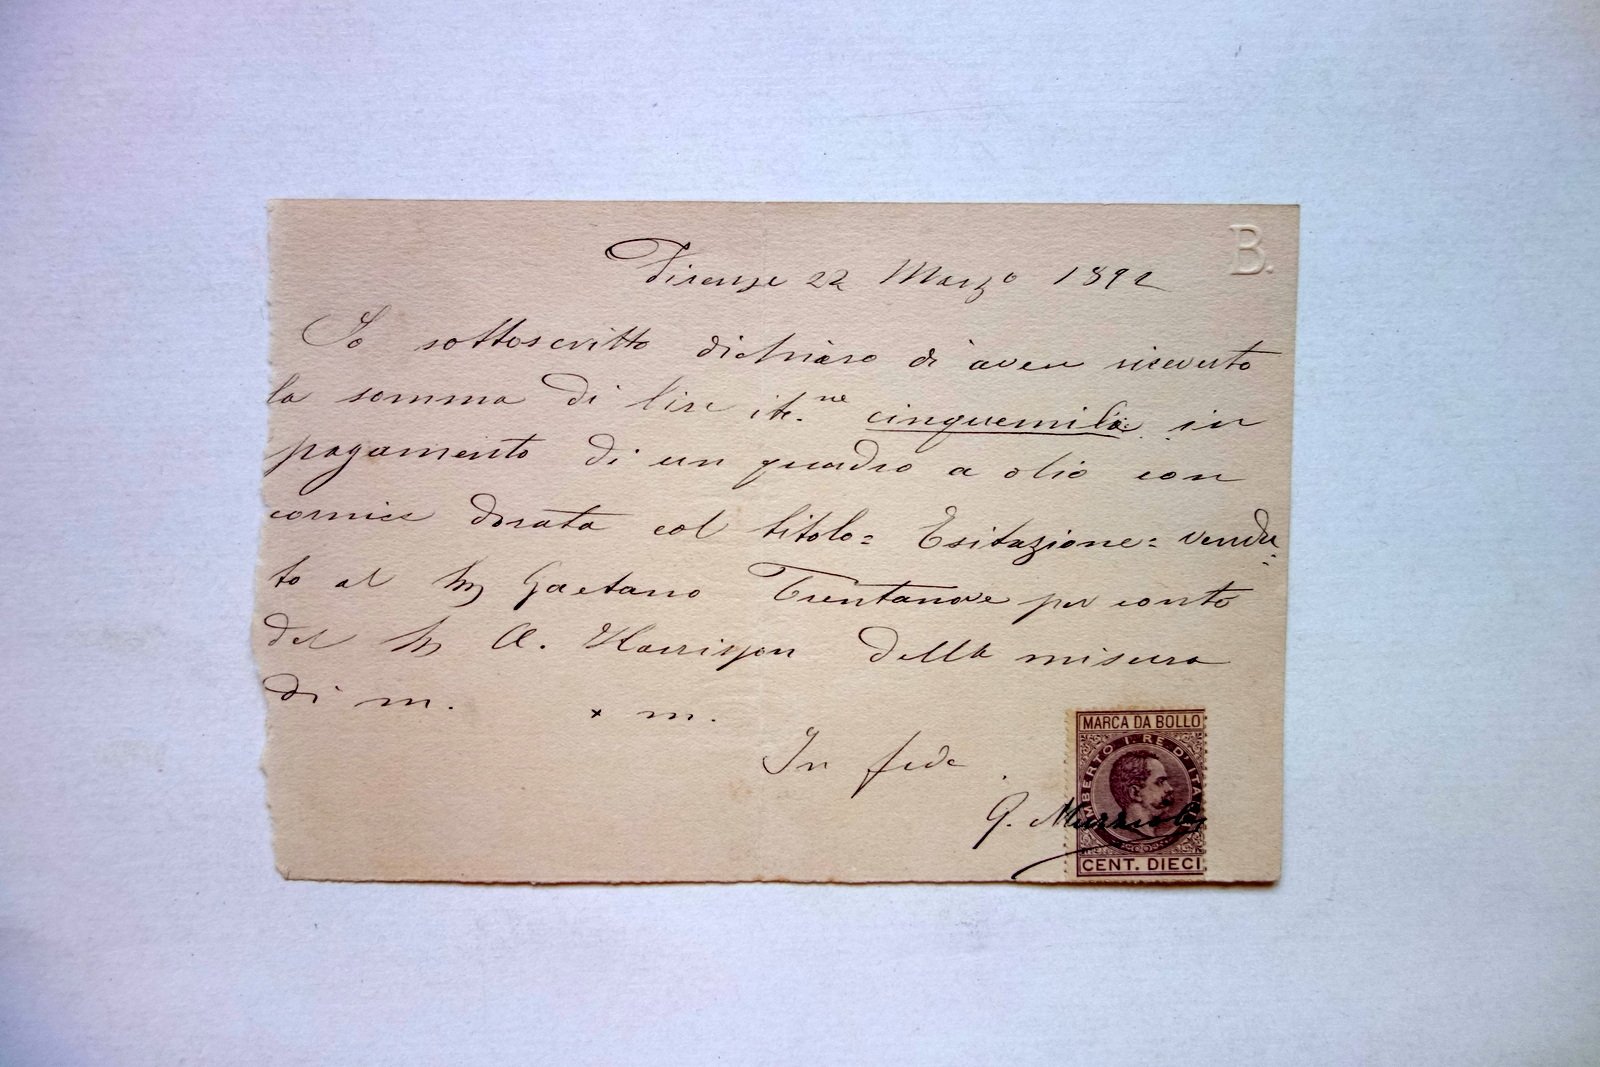 B.
Firenze 22 Marzo 1892
Io sottoscritto dichiaro di aver ricevuto
la somma di lire it.ne cinquemila in
pagamento di un quadro a olio con
cornice dorata col titolo= Esitazione= vendu=
to al Sig Gaetano Trentanove per conto
del Sig A. Harrison della misura
di m. x m.
In fede
G.
MARCA DA BOLLO
UMBERTO I. RE D'ITALIA
CENT. DIECI